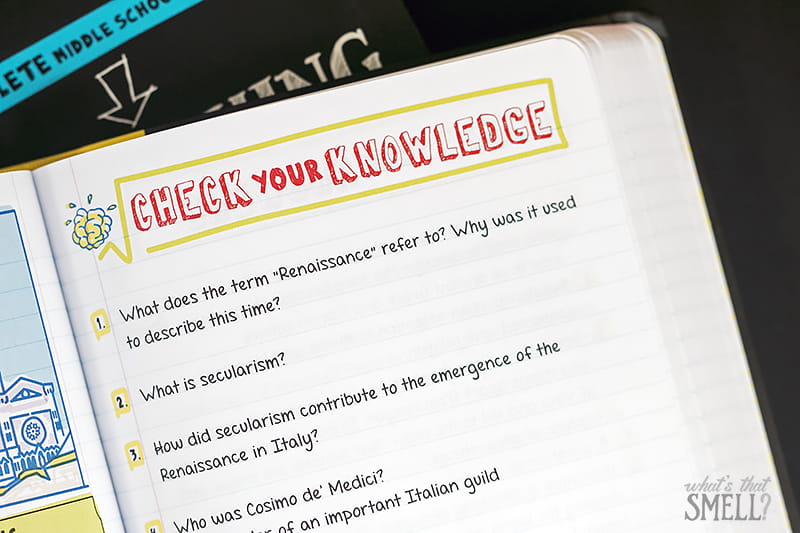 LETE MIDDLE SCHOOL
CHECK YOUR KNOWLEDGE
1. What does the term "Renaissance" refer to? Why was it used
to describe this time?
2. What is secularism?
3. How did secularism contribute to the emergence of the
Renaissance in Italy?
4. Who was Cosimo de' Medici?
of an important Italian guild
what's that
SMELL?